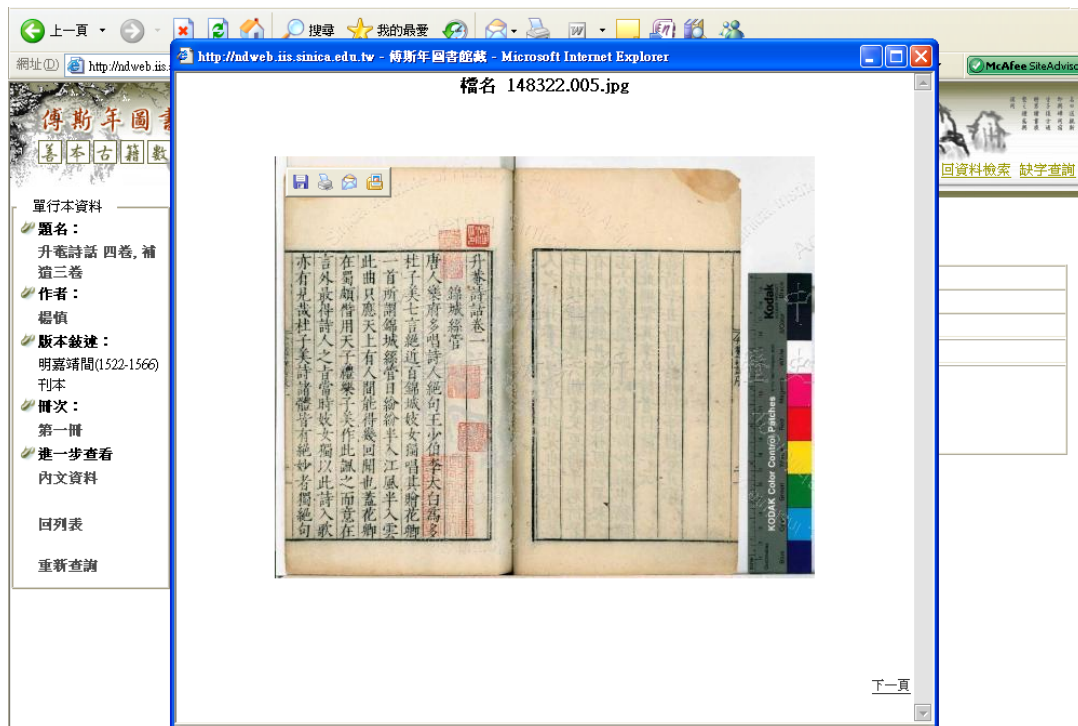 上一頁
搜尋
我的最愛
網址(D)
http://ndweb.iis.s
McAfee SiteAdviso
http://ndweb.iis.sinica.edu.tw - 傅斯年圖書館藏 - Microsoft Internet Explorer
檔名 148322.005.jpg
傅斯年圖書
善本古籍數
回資料檢索 缺字查詢
單行本資料
題名：
升菴詩話 四卷, 補
遺三卷
作者：
楊慎
版本敘述：
明嘉靖間(1522-1566)
刊本
冊次：
第一冊
進一步查看
內文資料
回列表
重新查詢
升菴詩話卷一
錦城絲管
唐人樂府多唱詩人絕句王少伯李太白為多
杜子美七言絕近百錦城妓女獨唱其贈花卿
一首所謂錦城絲管日紛紛半入江風半入雲
此曲只應天上有人間能得幾回聞也蓋花卿
在蜀頗僭用天子禮樂子美作此諷之而意在
言外最得詩人之旨當時妓女獨以此詩入歌
亦有見哉杜子美詩諸體皆有絕妙者獨絕句
Kodak
KODAK Color Control Patches
下一頁